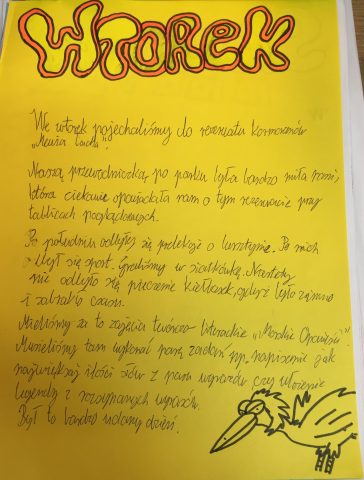 WTOREK
We wtorek pojechaliśmy do rezerwatu kormoranów
Naszą przewodniczką po parku była bardzo miła pani,
która ciekawie opowiadała nam o tym rezerwacie przy
tablicach poglądowych.
Po południu odbyły się prelekcje o bursztynie. Po nich
odbył się sport. Graliśmy w siatkówkę. Niestety
nie odbyło się pieczenie kiełbasek, gdyż było zimno
i zabrakło czasu.
Mieliśmy za to zajęcia twórczo literackie „Morskie Opowieści".
Musieliśmy tam wykonać parę zadań np. napisanie jak
największej ilości słów z paru wyrazów czy ułożenie
legendy z rozsypanych wyrazów.
Był to bardzo udany dzień.